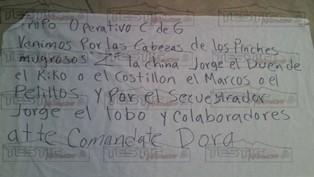 Grupo Operativo C de G
Venimos Por las Cabezas de los Pinches
mugrosos Z's la china Jorge el Duende
el Kiko o el Costillon el Marcos o el
Pelillos y Por el Secuestrador
Jorge el lobo y Colaboradores
atte Comandate Dora